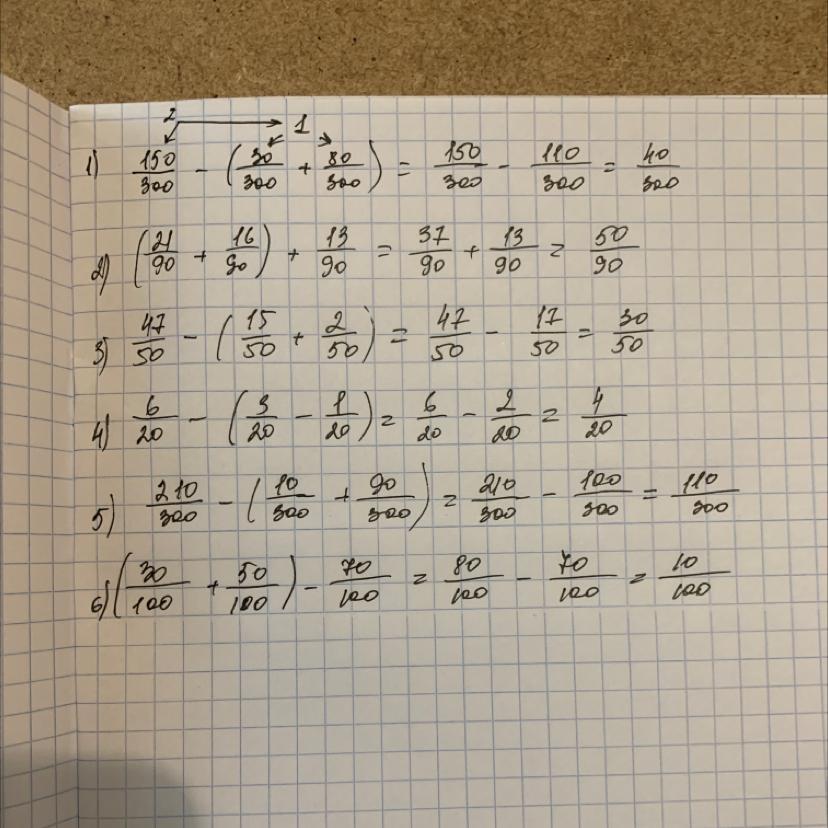 2 → 1
1) 150/300 - (30/300 + 80/300) = 150/300 - 110/300 = 40/300
2) (21/90 + 16/90) + 13/90 = 37/90 + 13/90 = 50/90
3) 47/50 - (15/50 + 2/50) = 47/50 - 17/50 = 30/50
4) 6/20 - (3/20 - 1/20) = 6/20 - 2/20 = 4/20
5) 210/300 - (10/300 + 90/300) = 210/300 - 100/300 = 110/300
6) (30/100 + 50/100) - 70/100 = 80/100 - 70/100 = 10/100